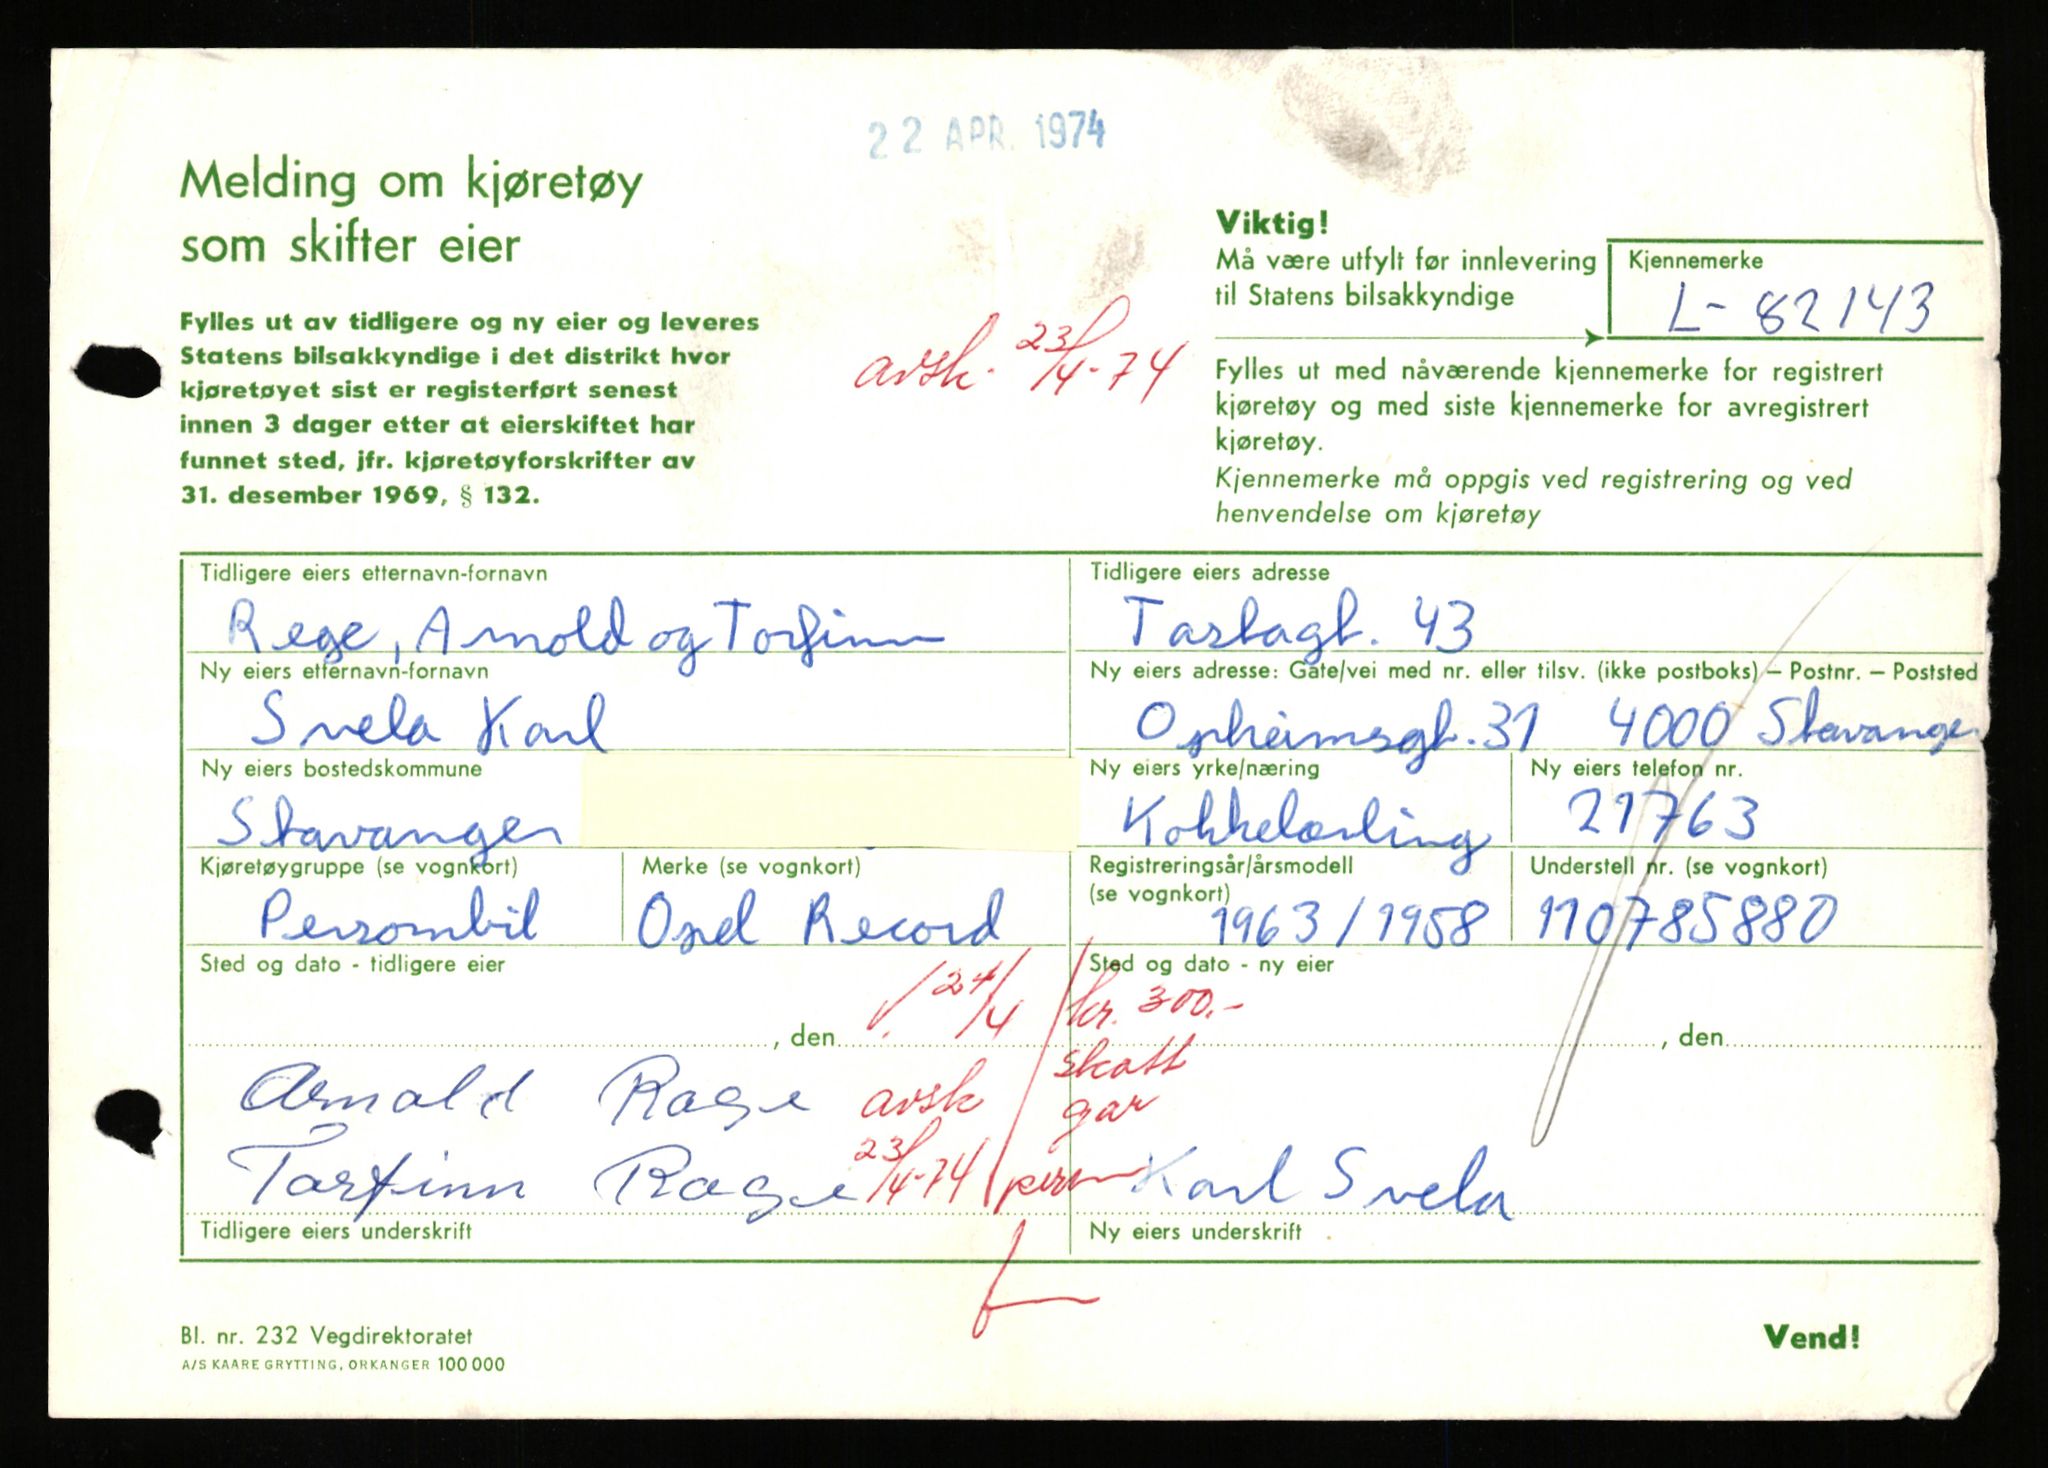 22 APR. 1974
Melding om kjøretøy
som skifter eier
Fylles ut av tidligere og ny eier og leveres
Statens bilsakkyndige i det distrikt hvor
kjøretøyet sist er registerført senest
innen 3 dager etter at eierskiftet har
funnet sted, jfr. kjøretøyforskrifter av
31. desember 1969, § 132.
avsk. 23/4-74
Viktig!
Må være utfylt før innlevering
til Statens bilsakkyndige
Kjennemerke
L-82143
Fylles ut med nåværende kjennemerke for registrert
kjøretøy og med siste kjennemerke for avregistrert
kjøretøy.
Kjennemerke må oppgis ved registrering og ved
henvendelse om kjøretøy
Tidligere eiers etternavn-fornavn
Rege, Arnold og Torfinn
Tidligere eiers adresse
Tastagt. 43
Ny eiers etternavn-fornavn
Svela Karl
Ny eiers adresse: Gate/vei med nr. eller tilsv. (ikke postboks) – Postnr. – Poststed
Opheimsgt. 31 4000 Stavanger
Ny eiers bostedskommune
Stavanger
Ny eiers yrke/næring
Kokkelærling
Ny eiers telefon nr.
21763
Kjøretøygruppe (se vognkort)
Personbil
Merke (se vognkort)
Opel Record
Registreringsår/årsmodell
(se vognkort)
1963/1958
Understell nr. (se vognkort)
110785880
Sted og dato - tidligere eier
, den
24/4
Sted og dato - ny eier
, den
kr. 300.-
skatt
gar
Arnold Rage
avsk
23/4-74
Torfinn Rage
Karl Svela
Tidligere eiers underskrift
Ny eiers underskrift
Bl. nr. 232 Vegdirektoratet
A/S KAARE GRYTTING, ORKANGER 100 000
Vend!